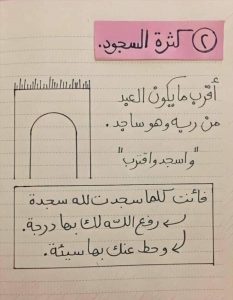 ٢ كثرة السجود.
أقرب ما يكون العبد
من ربه وهو ساجد.
"واسجد واقترب"
فأنت كلما سجدت لله سجدة
رفع الله لك بها درجة.
وحط عنك بها سيئة.